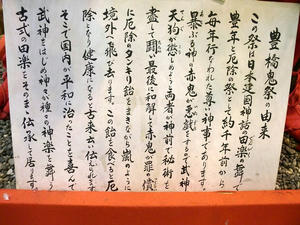 豊橋鬼祭の由来
この祭は日本建国神話の田楽の舞で
豊年と厄除の祭として約千年前から
毎年行なわれた尊い神事であります。
暴ぶる神の赤鬼が悪戯をするで武神
天狗が懲しめようと両者が神前で秘術を
盡して闘い最後に和解して赤鬼が罪の償
に厄除のタンキリ飴をまきながら嵐のように
境外へ飛び去ります。この飴を食べると厄
除となり健康になると古来云い伝えられます
そこで国内が平和に治ったことを喜んで
武神をはじめ神々種々の神楽を舞う
古式の田楽をそのまま伝承して居ります。